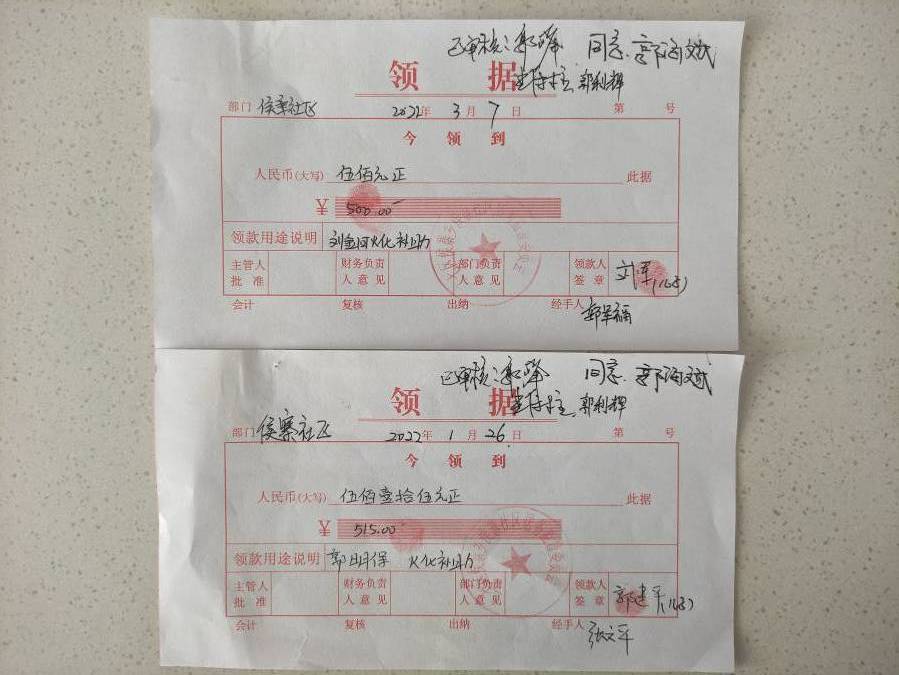 已审核：郭峰 同意.郭海斌
领 据 郭利辉
部门 侯寨社区 2022年 3月 7日 第 号
今 领 到
人民币(大写) 伍佰元正 此据
¥ 500.00
领款用途说明 刘金田火化补助
主管人批准 财务负责人意见 部门负责人意见 领款人签章 刘军(儿子)
会计 复核 出纳 经手人 郭军福
已审核：郭峰 同意.郭海斌
领 据 郭利辉
部门 侯寨社区 2022年 1月 26日 第 号
今 领 到
人民币(大写) 伍佰壹拾伍元正 此据
¥ 515.00
领款用途说明 郭明保 火化补助
主管人批准 财务负责人意见 部门负责人意见 领款人签章 郭建平(儿子)
会计 复核 出纳 经手人 张文平